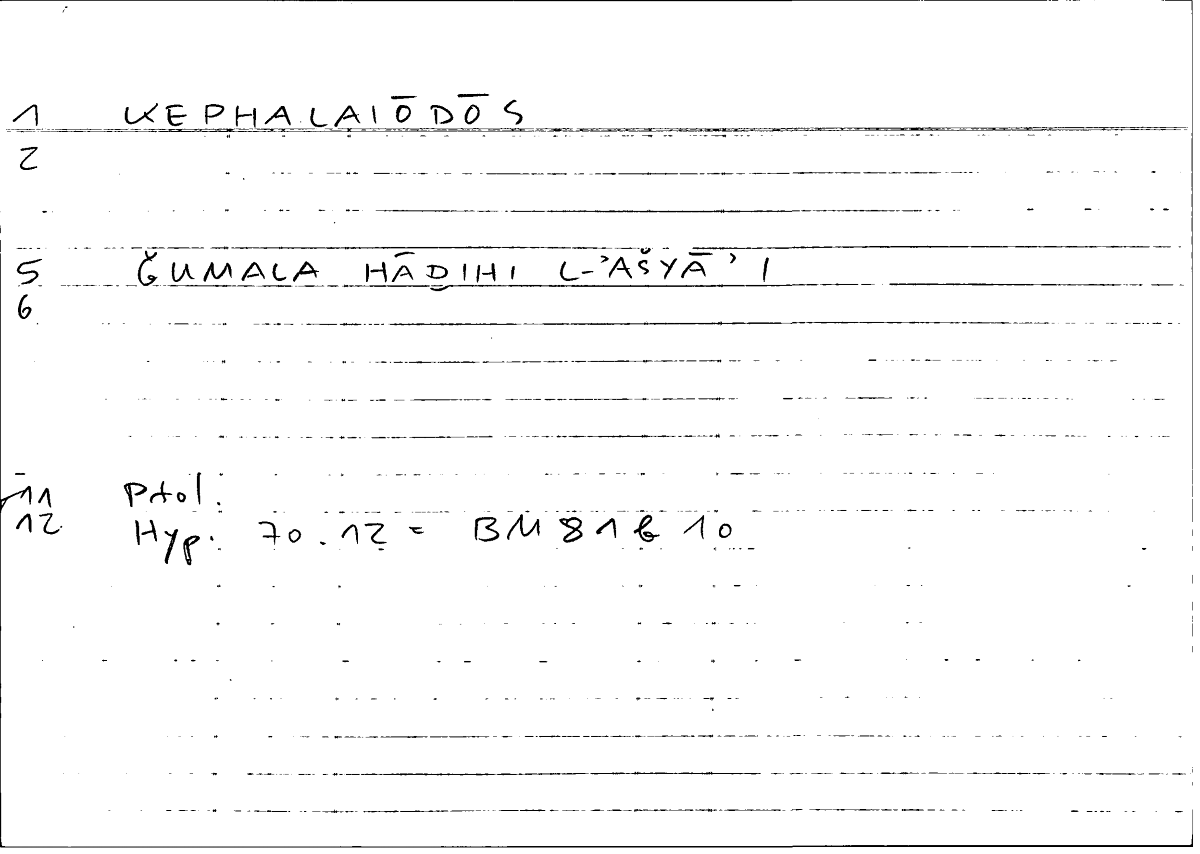 1 KEPHALAIŌDŌS
2
5 ǦUMALA HĀḎIHI L-ʾAŠYĀʾI
6
11 Ptol.
12 Hyp. 70.12 = BM 81 b 10